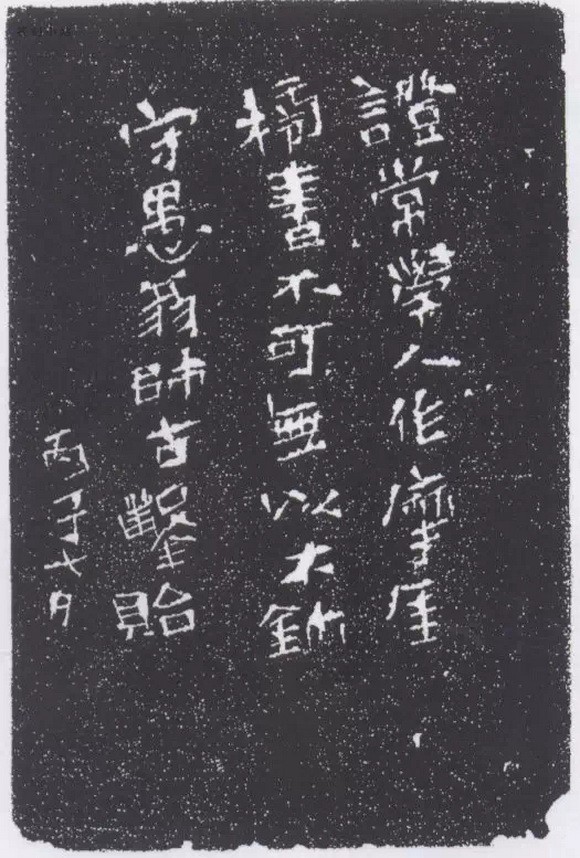 證常學人作摩厓
榜書不可無以大鉥
守愚翁師古鑿貽
丙子七月